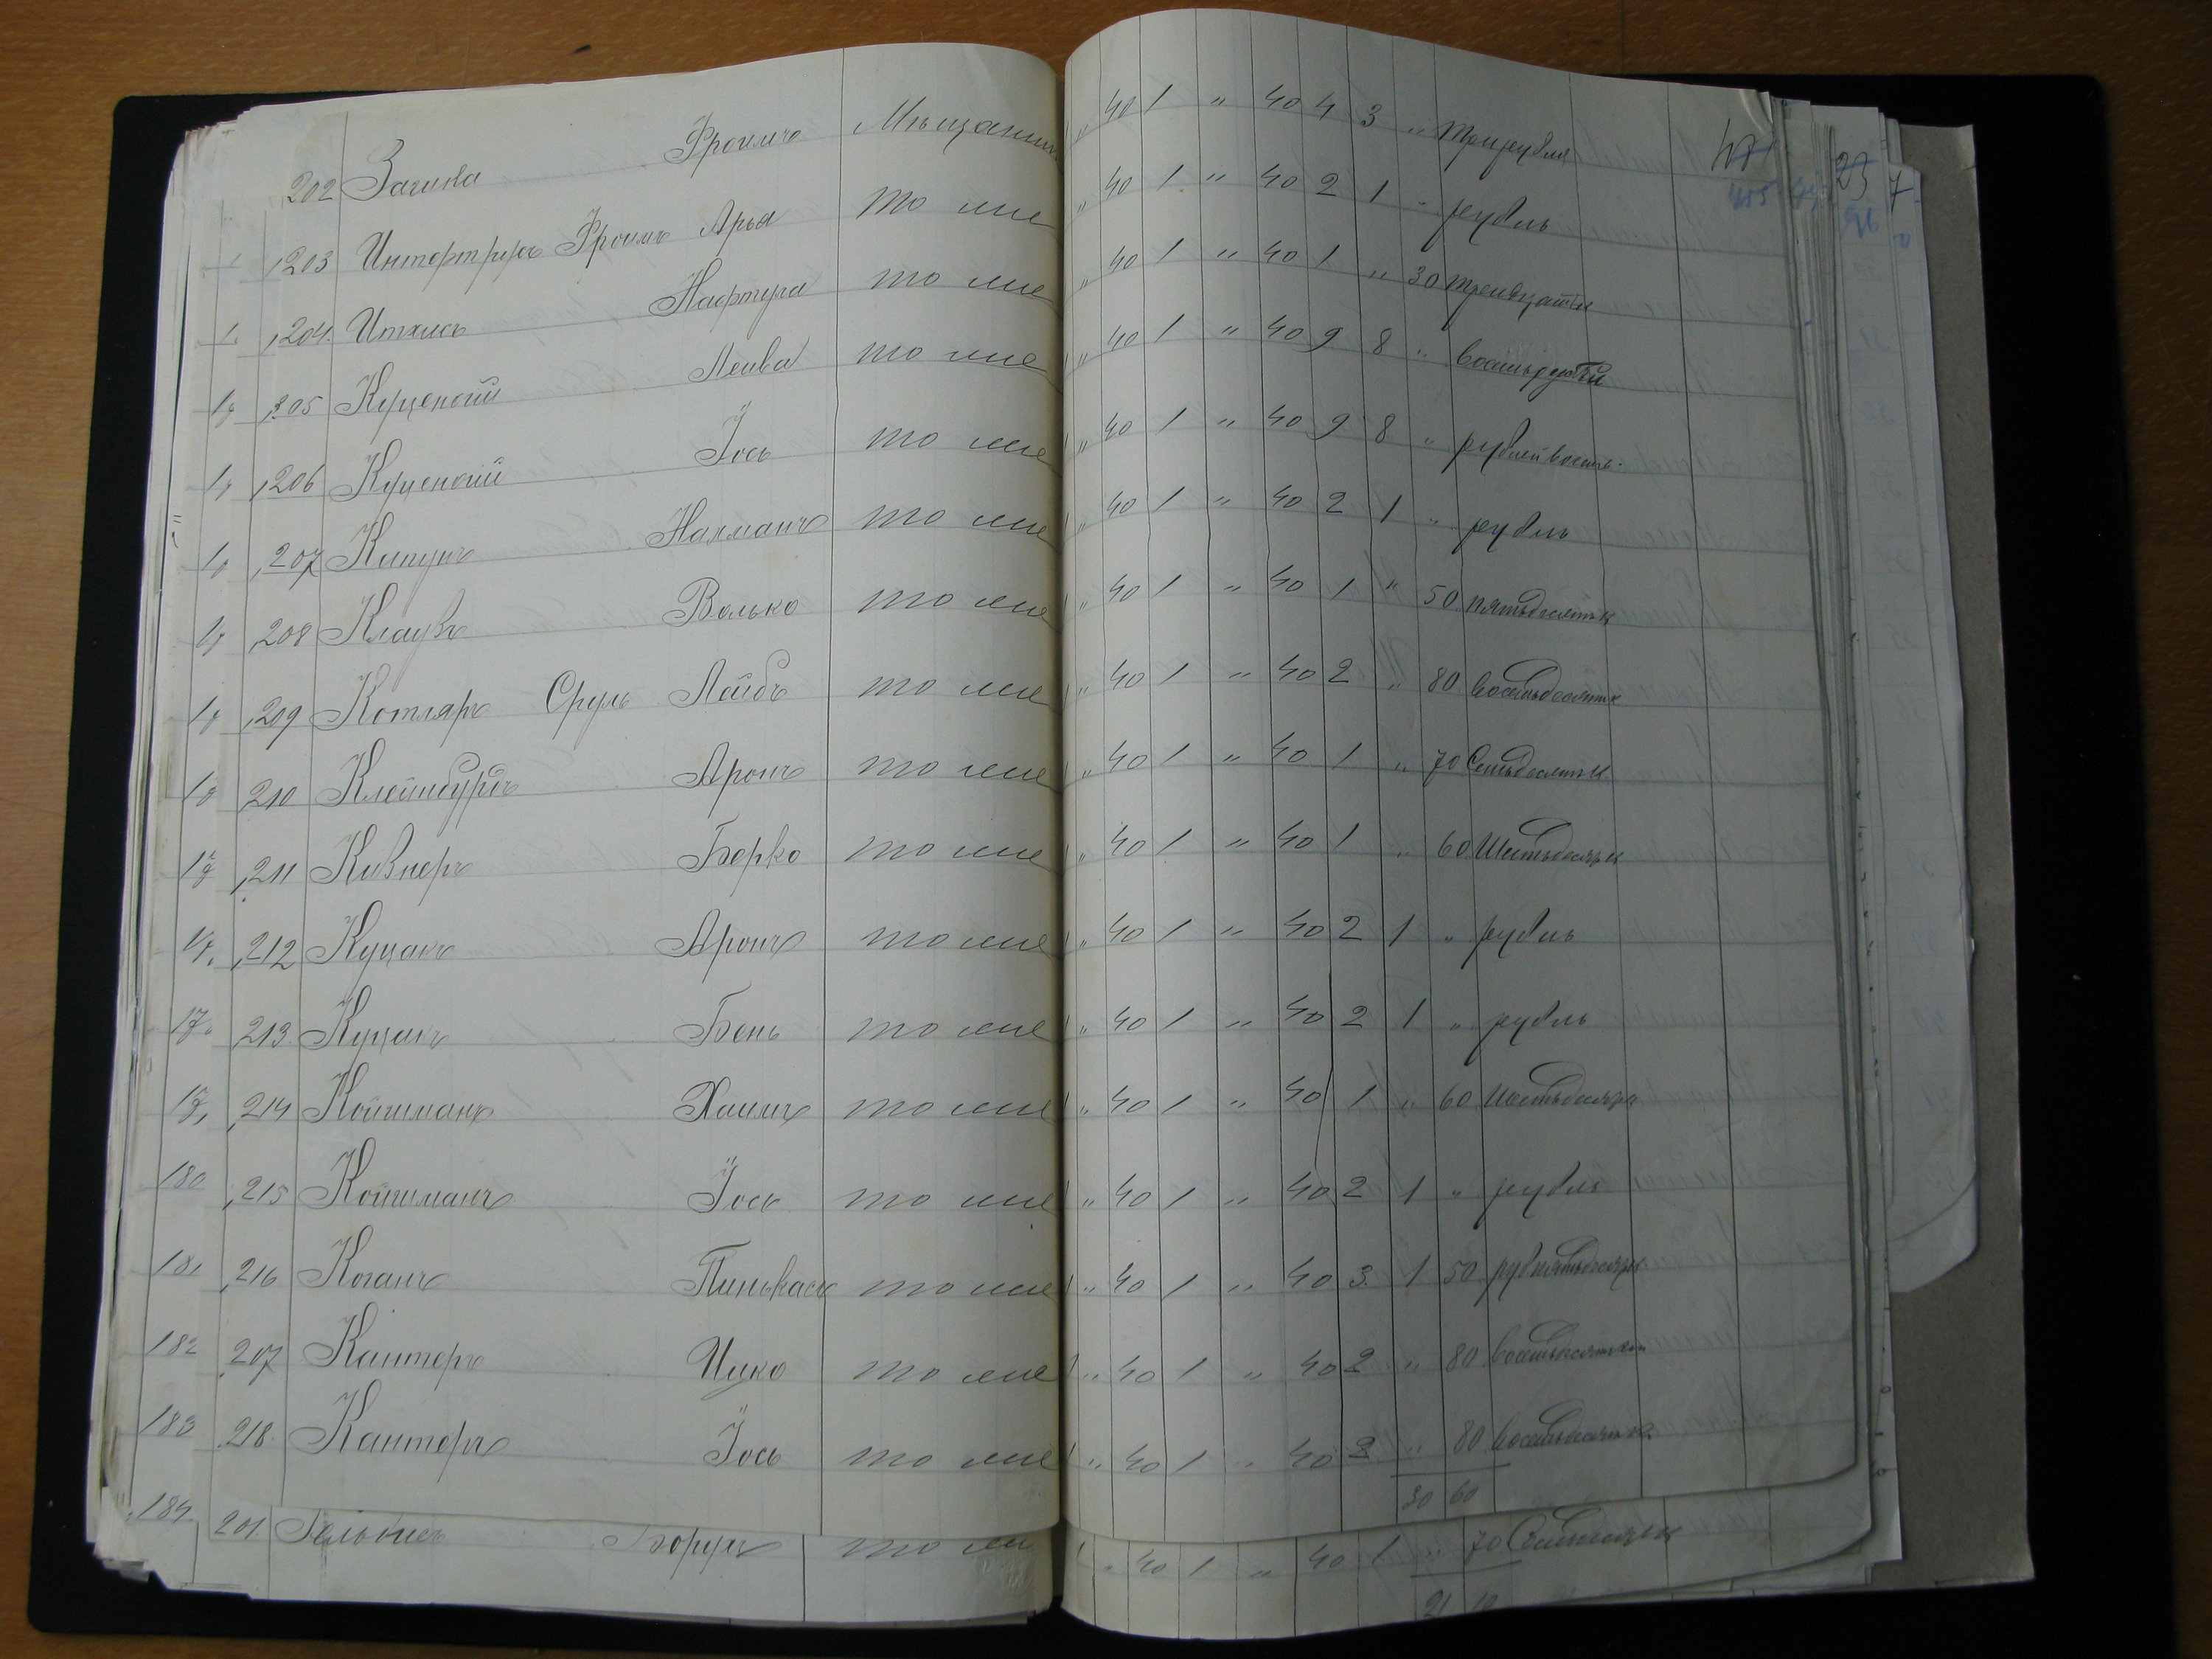 202 Загика Фроимъ Мѣщанинъ " 40 1 " 40 4 3 " три рубля
203 Фроимъ Арья то же " 40 1 " 40 2 1 " рубль
204. Нафтула то же " 40 1 " 40 1 " 30 тридцать к
205 Куценогій Лейва то же " 40 1 " 40 9 8 " восемь рублей
206 Куценогій Іось то же " 40 1 " 40 9 8 " рублей восемь
207 Кипунъ Нахманъ то же " 40 1 " 40 2 1 " рубль
208 Клаузъ Волько то же " 40 1 " 40 1 " 50 пятьдесятъ к
209 Котляръ Сруль Лейбъ то же " 40 1 " 40 2 " 80 восемьдесятъ к
210 Клейнбурдъ Аронъ то же " 40 1 " 40 1 " 70 семьдесятъ к
211 Кивнеръ Берко то же " 40 1 " 40 1 " 60 Шестьдесятъ к
212 Куцакъ Аронъ то же " 40 1 " 40 2 1 " рубль
213 Бень то же " 40 1 " 40 2 1 " рубль
214 Койшманъ Хаимъ то же " 40 1 " 40 1 " 60 шестьдесятъ к
180 215 Койшманъ Іось то же " 40 1 " 40 2 1 " рубль
181 216 Коганъ Пинькасъ то же " 40 1 " 40 3 1 50 руб пятьдесятъ к
182 207 Кантеръ Ицко то же " 40 1 " 40 2 " 80 восемьдесятъ коп
183 218 Кантеръ Іось то же " 40 1 " 40 2 " 80 восемьдесятъ к
30 60
184 201. Борухъ то же " 40 1 " 40 1 70 Семьдесятъ к